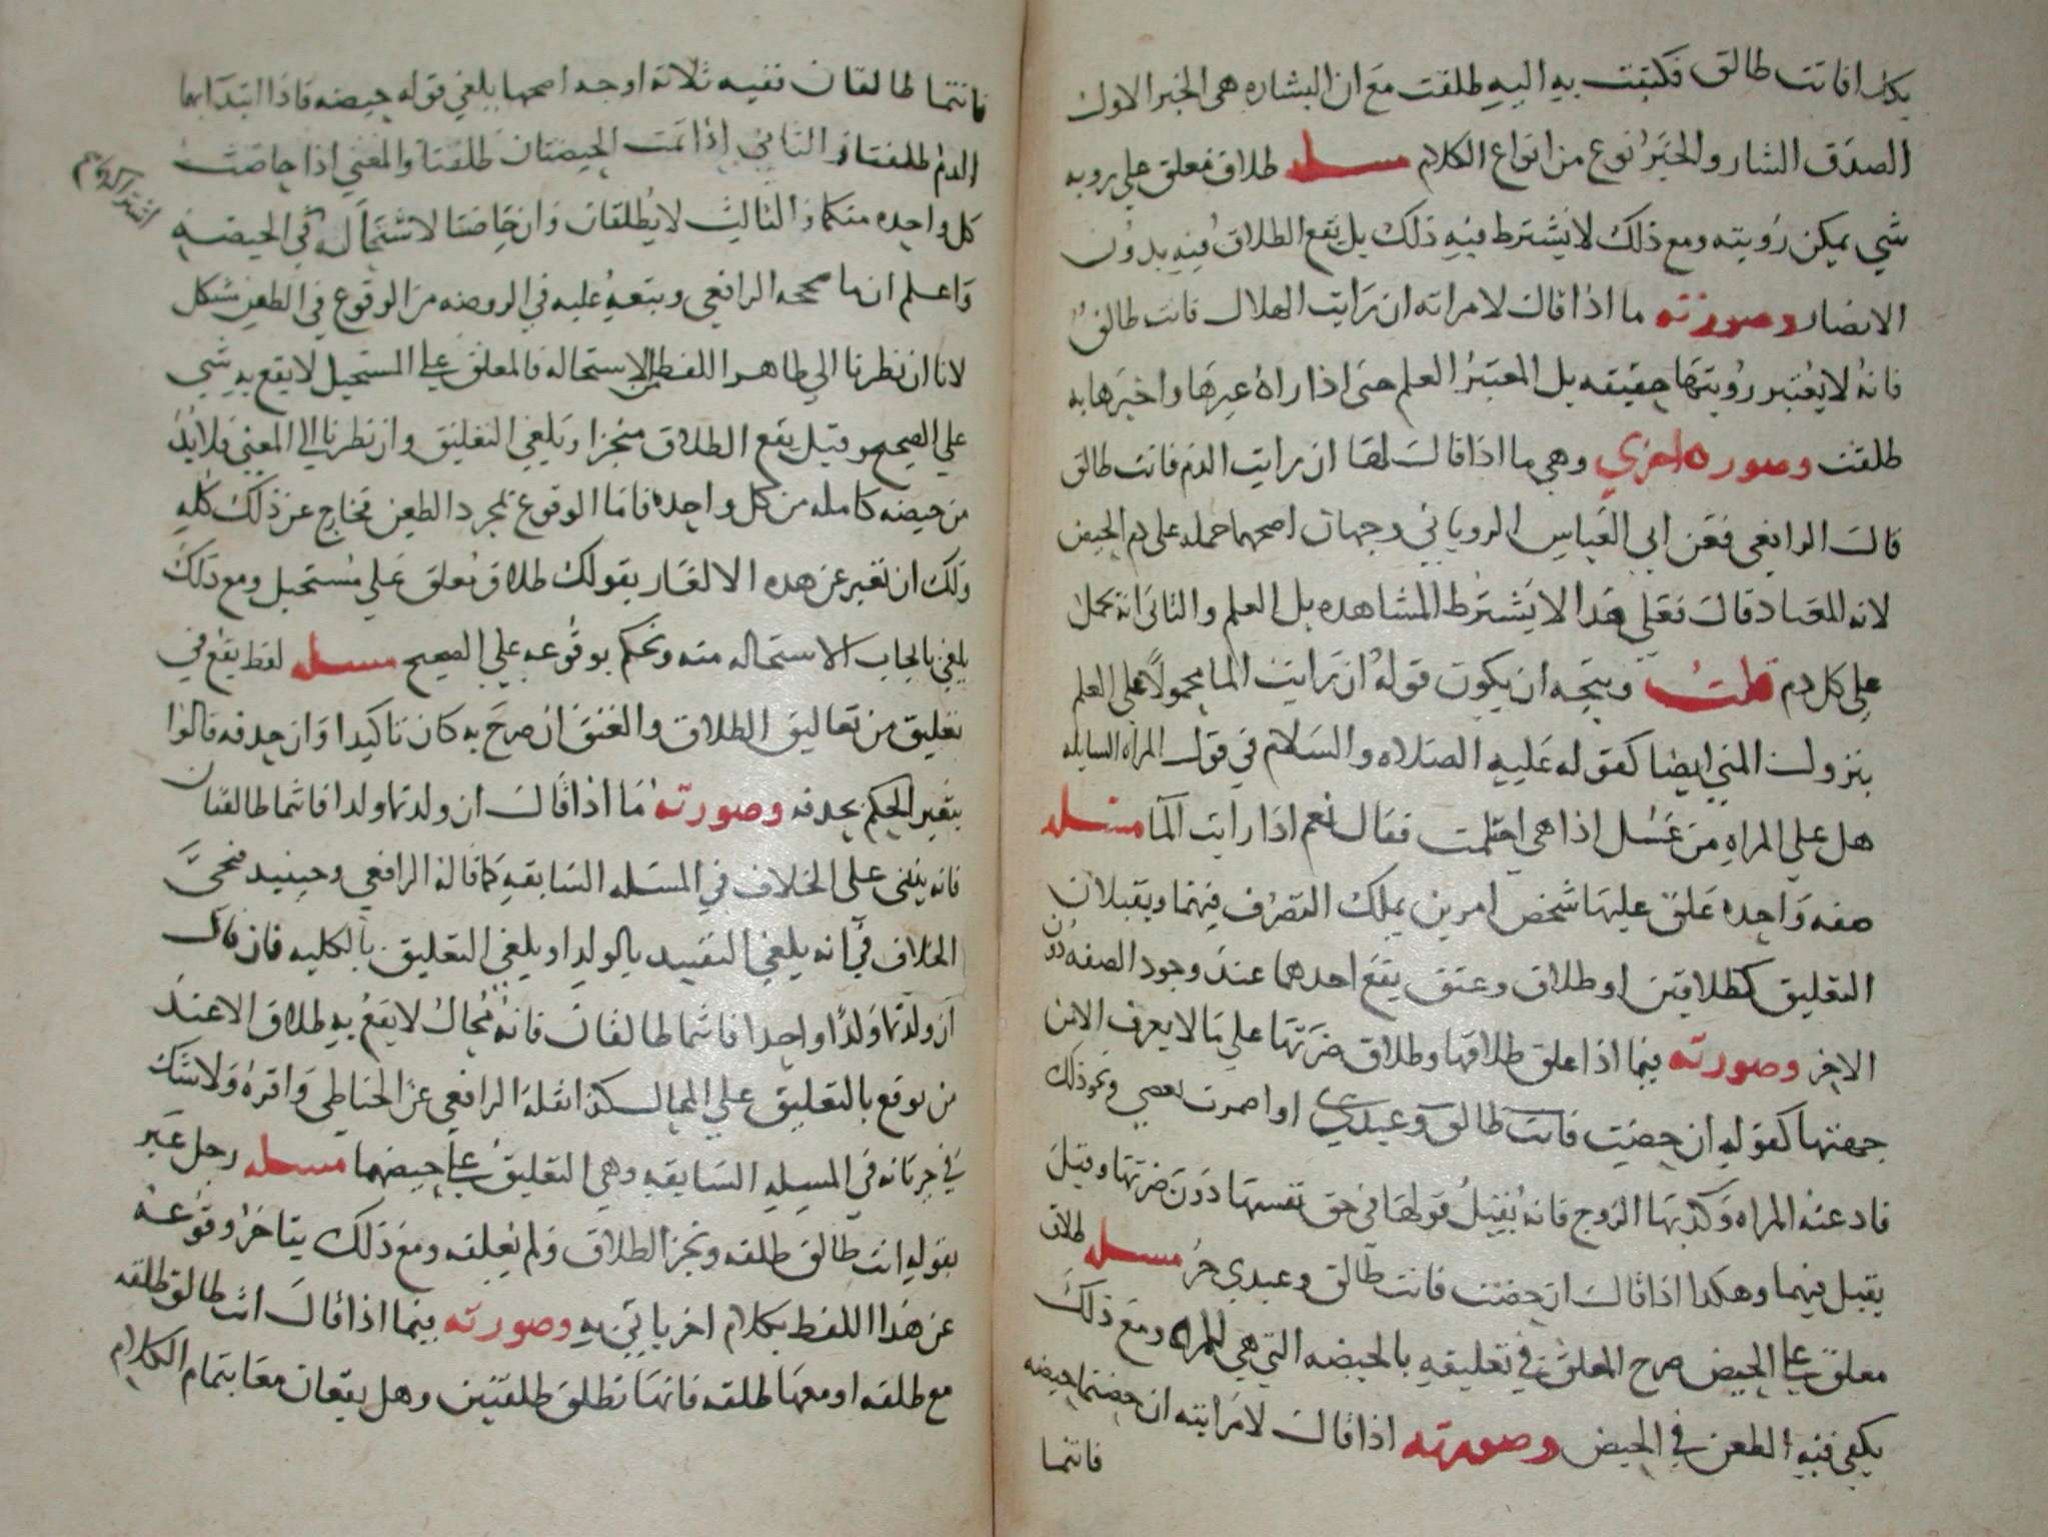 بكذا فانت طالق فكتبت به اليه طلقت مع ان البشاره هى الخبر الاول
الصدق السار والخبر نوع من انواع الكلام مسله طلاق معلق على رويه
شي يمكن رويته ومع ذلك لا يشترط فيه ذلك بل يقع الطلاق فيه بدون
الابصار وصورته ما اذا قال لامراته ان رايت الهلال فانت طالق
فانه لا يعتبر رويتها حقيقه بل المعتبر العلم حتى اذا راه غيرها واخبرها به
طلقت وصوره اخري وهي ما اذا قال لها ان رايت الدم فانت طالق
قال الرافعي فعن ابي العباس الروياني وجهان اصحهما حمله على دم الحيض
لانه المعتاد قال فعلي هذا لا يشترط المشاهده بل العلم والثاني انه يحمل
على كل دم قلت ويتجه ان يكون قوله ان رايت الما محمولا على العلم
بنزول المني ايضا كقوله عليه الصلاه والسلام في قول المراه السايله
هل علي المراه من غسل اذا هي احتلمت فقال نعم اذا رات الما مسله
صفه واحده علق عليها شخص امرين يملك التصرف فيهما ويقبلان
التعليق كطلاقين او طلاق وعتق يقع احدهما عند وجود الصفه دون
الاخر وصورته فيما اذا علق طلاقها وطلاق ضرتها علي ما لا يعرف الا من
جهتها كقوله ان حضت فانت طالق وعبدي او اضمرت بغضي ونحو ذلك
فادعته المراه وكذبها الزوج فانه يقبل قولها في حق نفسها دون ضرتها وقيل
يقبل فيهما وهكذا اذا قال ان حضت فانت طالق وعبدي حر مسله طلاق
معلق على الحيض صرح المعلق في تعليقه بالحيضه التي هي للمراه ومع ذلك
يكفي فيه الطعن في الحيض وصورته اذا قال لامراتيه ان حضتما حيضه
فانتما
فانتما طالقان ففيه ثلاثه اوجه اصحها يلغي قوله حيضه فاذا ابتدا بهما
الدم طلقتا والثاني اذا تمت الحيضتان طلقتا والمعني اذا حاضت
كل واحده منكما والثالث لا يطلقان وان حاضتا لاشتمال في الحيضه
اشتراكهم
واعلم ان ما صححه الرافعي وتبعه عليه في الروضه من الوقوع في الطعن مشكل
لانا ان نظرنا الي ظاهر اللفظ الاستحاله فالمعلق على المستحيل لا يقع به شي
على الصحيح وقيل يقع الطلاق منجزا ويلغي التعليق وان نظرنا الى المعني فلا بد
من حيضه كامله من كل واحده فاما الوقوع بمجرد الطعن فخارج عن ذلك كله
ولك ان تعبر عن هذه الالغاز بقولك طلاق معلق على مستحيل ومع ذلك
يلغي بالجاب الاستحاله منه ونحكم بوقوعه علي الصحيح مسله لفظ يقع في
تعليق من تعاليق الطلاق والعتق ان صرح به كان تاكيدا وان حذفه قالوا
بتغير الحكم بحذفه وصورته ما اذا قال ان ولدتما ولدا فانتما طالقتان
فانه ينبني على الخلاف في المسله السابقه كما قاله الرافعي وحينيد فيجي
الخلاف في انه يلغي التقييد بالولد او يلغي التعليق بالكليه فان قال
ان ولدتما ولدا واحدا فانتما طالقان فانه محال لا يقع به طلاق الا عند
من يوقع بالتعليق علي المحال كذا نقله الرافعي عن الحناطي واقره ولا شك
في جريانه في المسله السابقه وهي التعليق على حيضهما مسله رجل عبر
بقوله انت طالق طلقه ونجز الطلاق ولم يعلقه ومع ذلك يتاخر وقوعه
عن هذا اللفظ بكلام اخر ياتي به وصورته فيما اذا قال انت طالق طلقه
مع طلقه او معها طلقه فانها تطلق طلقتين وهل يقعان معا بتمام الكلام